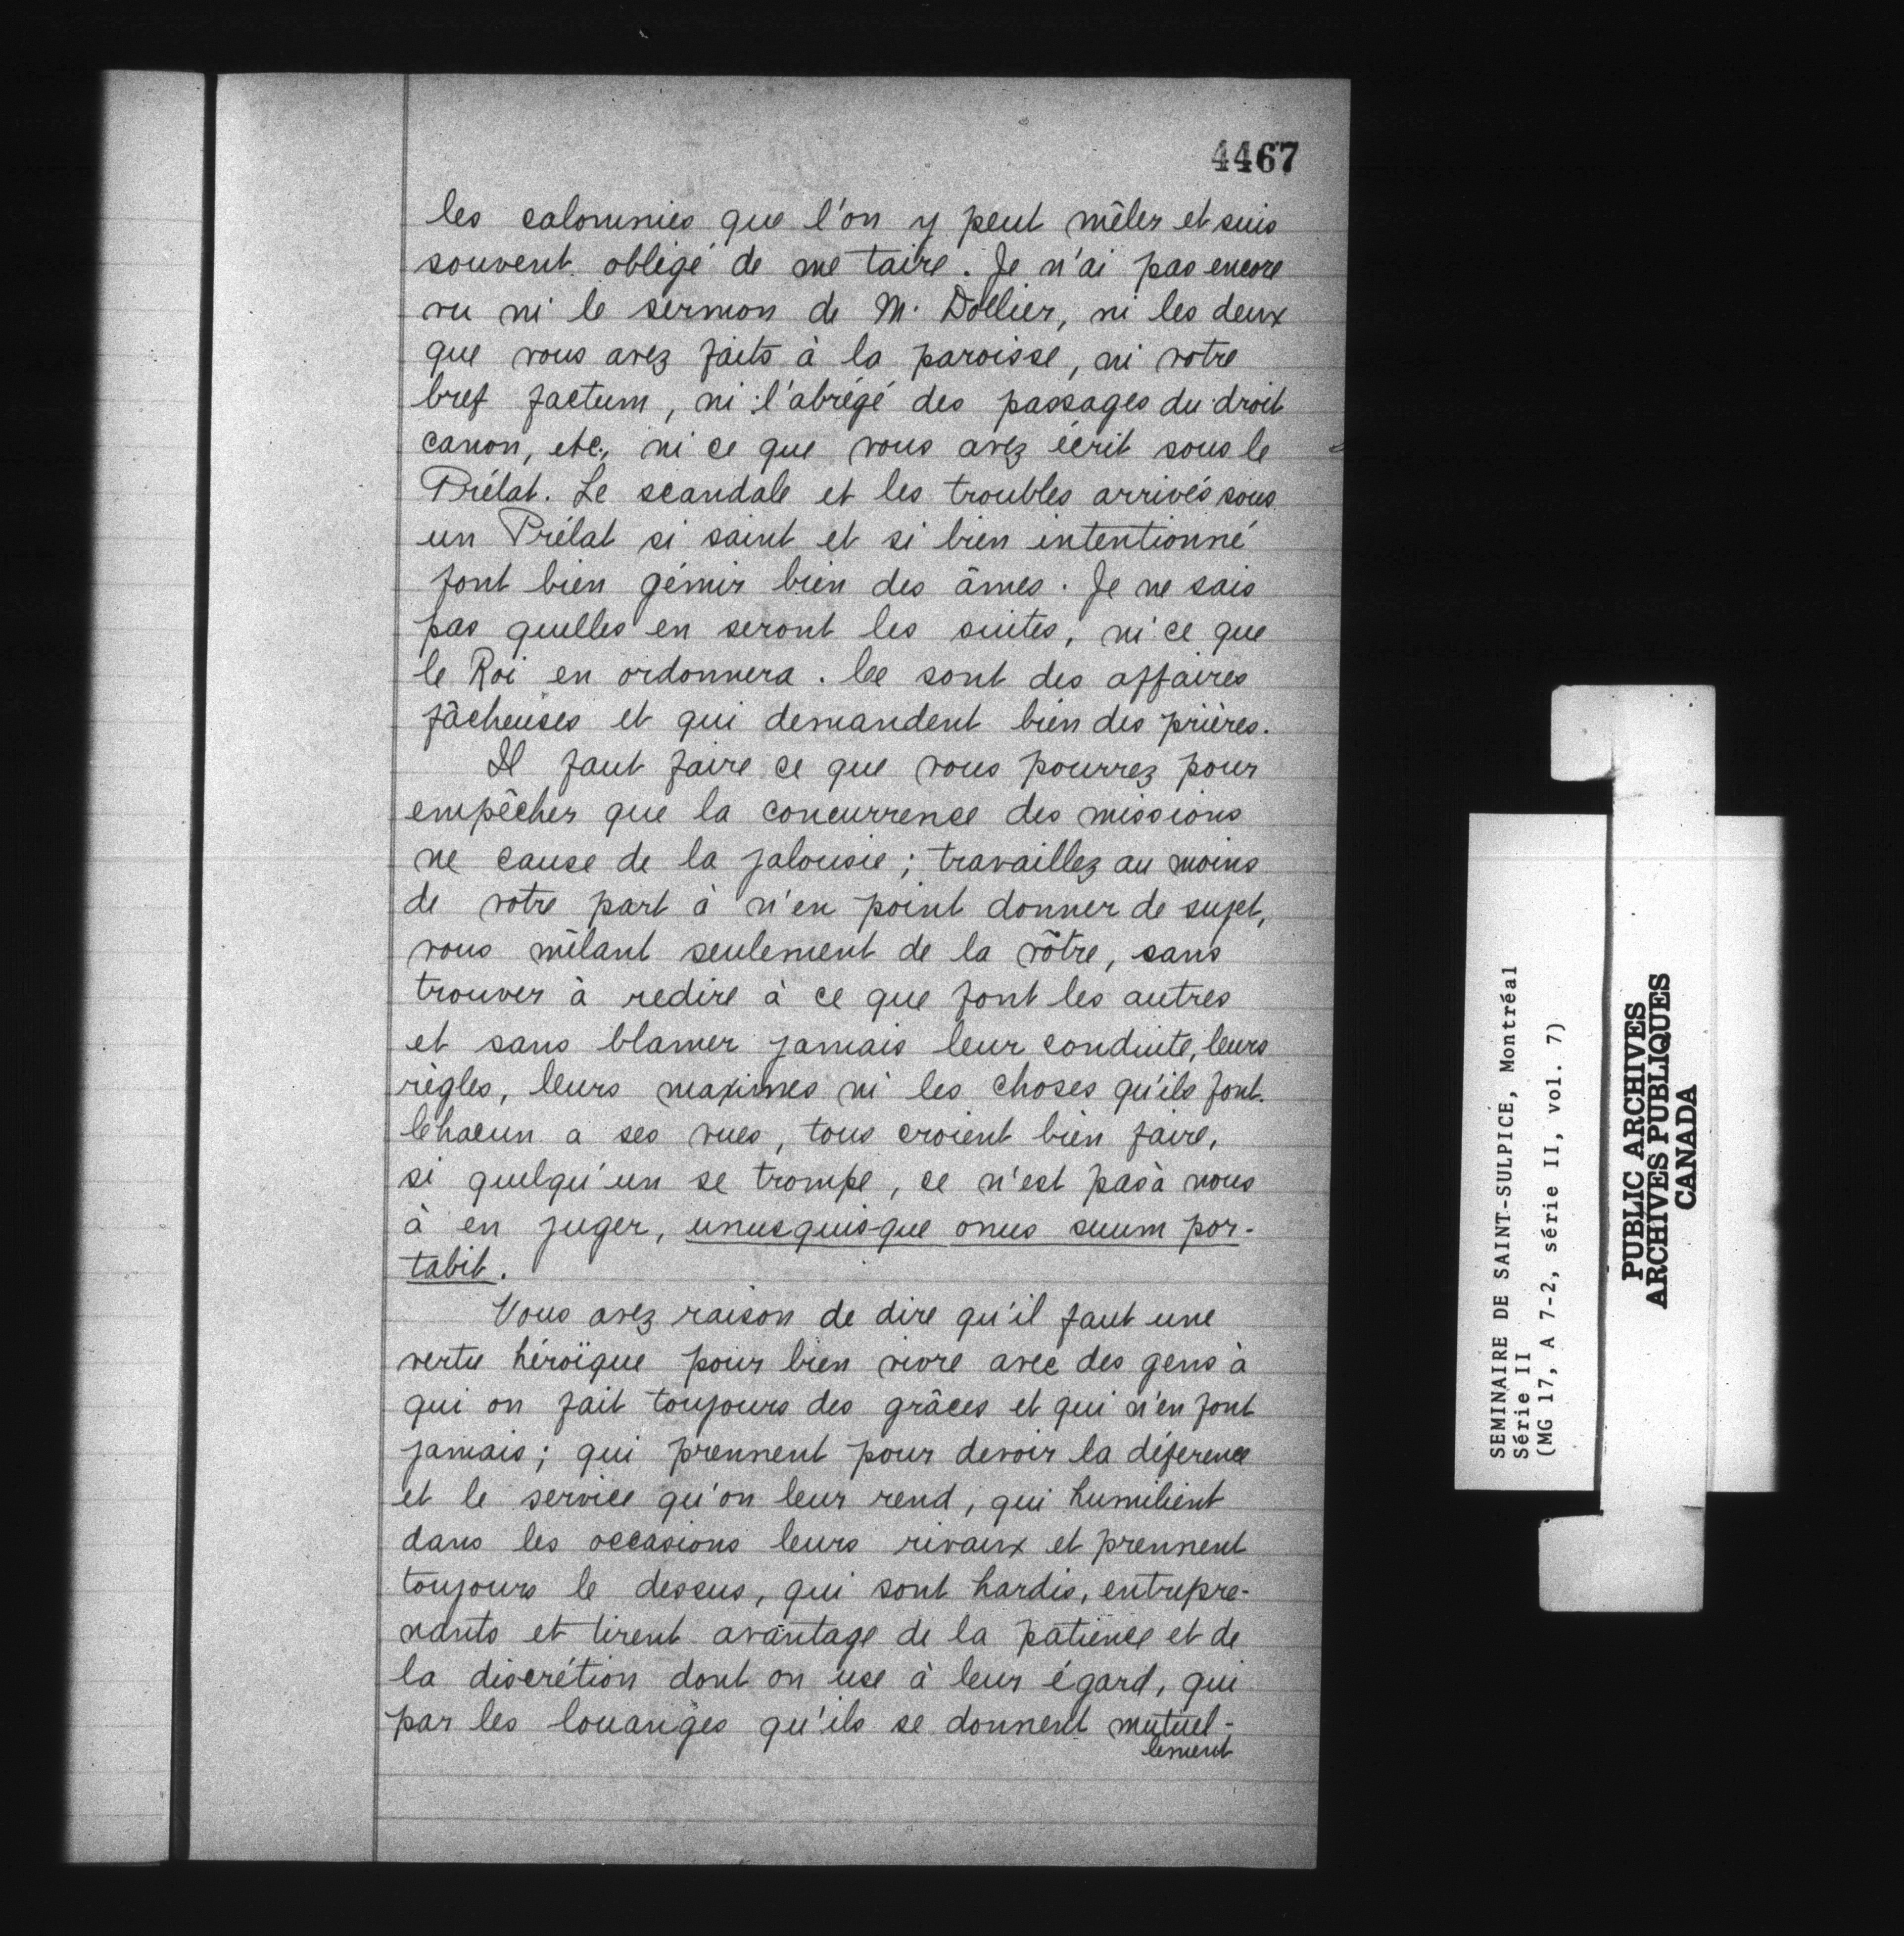 4467
les calomnies que l'on y peut mêler et suis
souvent obligé de me taire. Je n'ai pas encore
vu ni le sermon de M. Dollier, ni les deux
que vous avez faits à la paroisse, ni votre
bref factum, ni l'abrégé des passages du droit
canon, etc., ni ce que vous avez écrit sous le
Prélat. Le scandale et les troubles arrivés sous
un Prélat si saint et si bien intentionné
font bien gémir bien des âmes. Je ne sais
pas quelles en seront les suites, ni ce que
le Roi en ordonnera. Ce sont des affaires
fâcheuses et qui demandent bien des prières.
Il faut faire ce que vous pourrez pour
empêcher que la concurrence des missions
ne cause de la jalousie; travaillez au moins
de votre part à n'en point donner de sujet,
vous mêlant seulement de la vôtre, sans
trouver à redire à ce que font les autres
et sans blamer jamais leur conduite, leurs
règles, leurs maximes ni les choses qu'ils font.
Chacun a ses vues, tous croient bien faire,
si quelqu'un se trompe, ce n'est pas à nous
à en juger, unusquisque onus suum por-
tabit.
Vous avez raison de dire qu'il faut une
vertu héroïque pour bien vivre avec des gens à
qui on fait toujours des grâces et qui n'en font
jamais; qui prennent pour devoir la déference
et le service qu'on leur rend, qui humilient
dans les occasions leurs rivaux et prennent
toujours le dessus, qui sont hardis, entrepre-
nants et tirent avantage de la patience et de
la discrétion dont on use à leur égard, qui
par les louanges qu'ils se donnent mutuel-
lement
SEMINAIRE DE SAINT-SULPICE, Montréal
Série II
(MG 17, A 7-2, série II, vol. 7)
PUBLIC ARCHIVES
ARCHIVES PUBLIQUES
CANADA